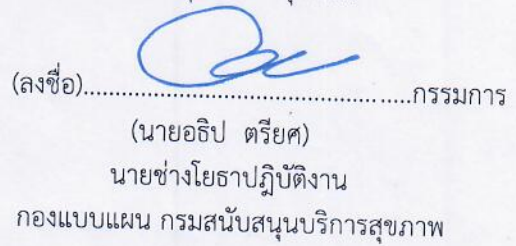 (ลงชื่อ)..................................................กรรมการ
(นายอธิป ตรียศ)
นายช่างโยธาปฏิบัติงาน
กองแบบแผน กรมสนับสนุนบริการสุขภาพ